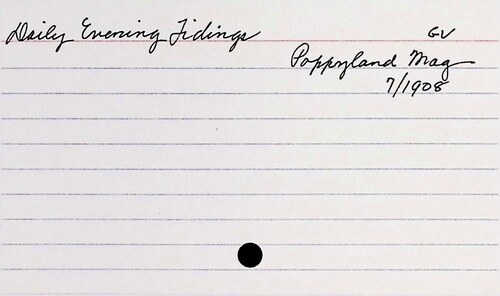 Daily Evening Tidings
GV
Poppyland Mag
7/1908